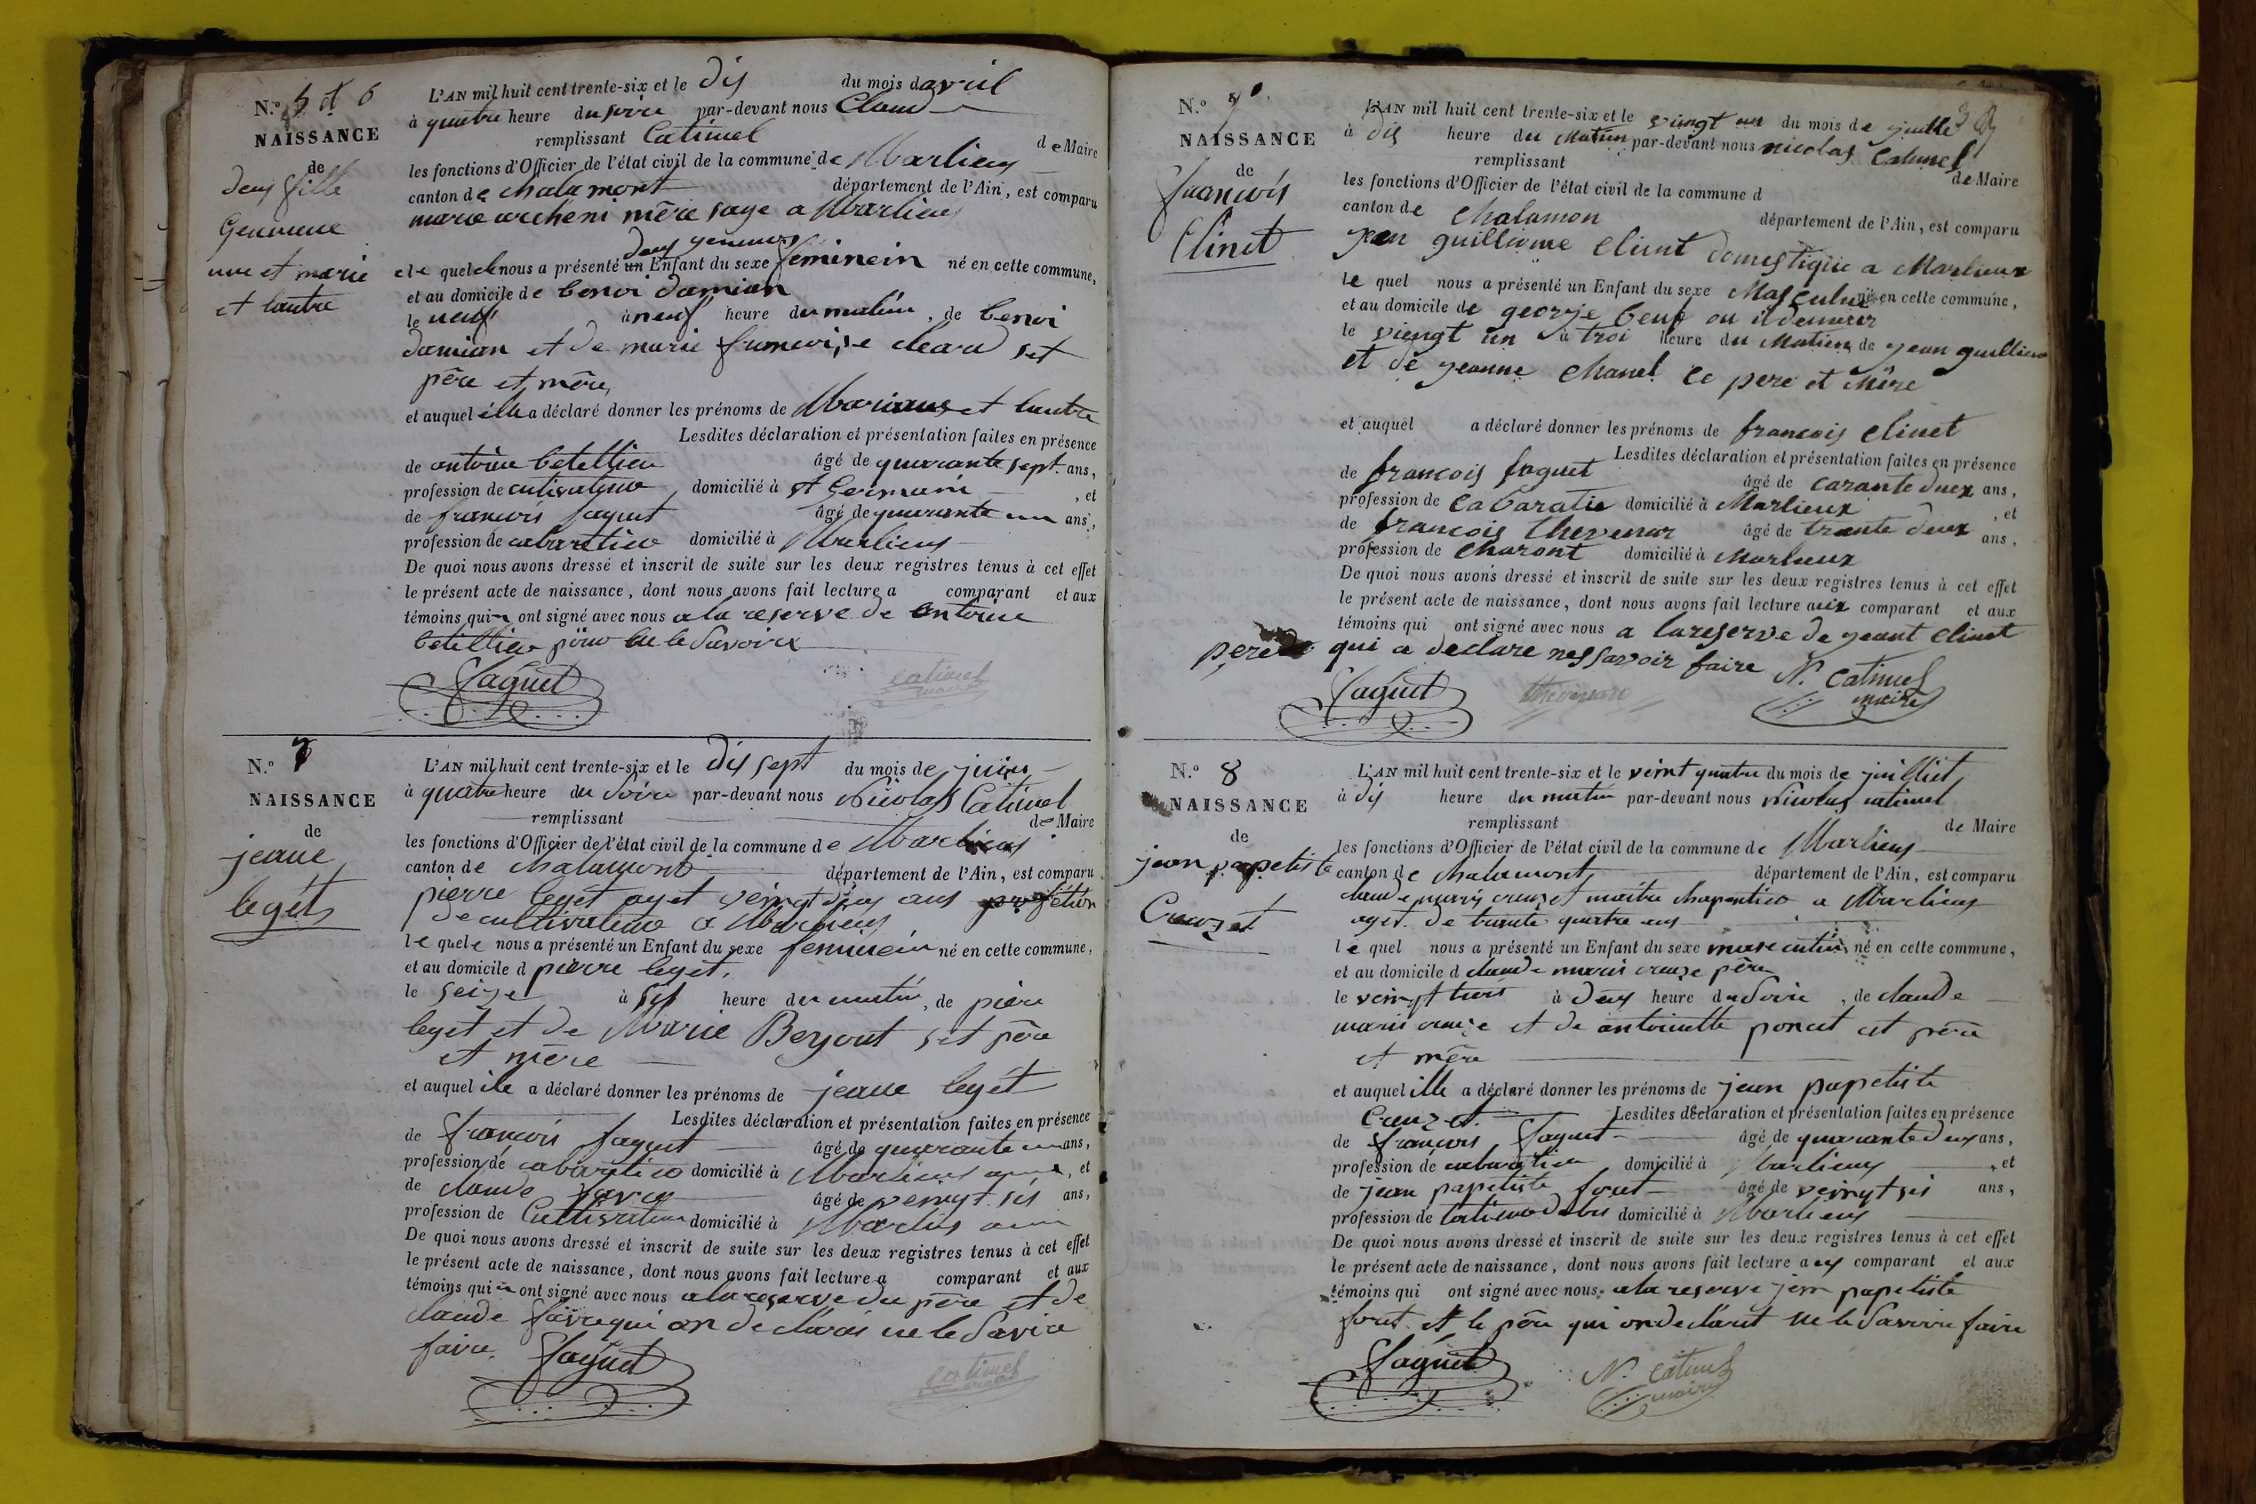 N.º 5 et 6
NAISSANCE
de
deux fille
et marie
et lautre
L'AN mil huit cent trente-six et le dix du mois d avril
à quatre heure du soire par-devant nous Claud
remplissant Catimel de Maire
les fonctions d'Officier de l'état civil de la commune de Marlieux
canton de chalamont département de l'Ain, est comparu
marie archeni mère sage a Marlieux
deux
le quele nous a présenté un Enfant du sexe feminein né en cette commune,
et au domicile de benoi damian
le neuf à neuf heure du matin, de benoi
damian et de marie francoise cleard set
père et mère
et auquel elle a déclaré donner les prénoms de et lautre
Lesdites déclaration et présentation faites en présence
de antoine betellier âgé de quarante sept ans,
profession de cultivateur domicilié à st Germain, et
de francois faguet âgé de quarante un ans,
profession de cabaretier domicilié à Marlieux
De quoi nous avons dressé et inscrit de suite sur les deux registres tenus à cet effet
le présent acte de naissance, dont nous avons fait lecture a comparant et aux
témoins qui ont signé avec nous a la reserve de antoine
betellier pour ne le savoire
Faguet catimel maire
N.º 7
NAISSANCE
de
jeane
legét
L'AN mil huit cent trente-six et le dix sept du mois de juin
à quatre heure du soire par-devant nous Nicolas Catimel
remplissant de Maire
les fonctions d'Officier de l'état civil de la commune de Marlieux
canton de chalamont département de l'Ain, est comparu
pierre legét aget veingt ans profétion
de cultivateur a Marlieux
le quele nous a présenté un Enfant du sexe feminein né en cette commune,
et au domicile d pierre legét,
le seize à heure du matin, de piere
legét et de Marie Beyout set père
et mère
et auquel ile a déclaré donner les prénoms de jeane legét
Lesdites déclaration et présentation faites en présence
de francois faguet âgé de quarante un ans,
profession de cabaretier domicilié à Marlieux, et
de claude favre âgé de veingt sis ans,
profession de Cultivateur domicilié à Marlieux
De quoi nous avons dressé et inscrit de suite sur les deux registres tenus à cet effet
le présent acte de naissance, dont nous avons fait lecture a comparant et aux
témoins qui ont signé avec nous a la reserve du père et de
claude favre qui on declarés ne le savoir
faire. Faguet catimel maire
N.º 7
NAISSANCE
de
francois
Clinet
L'AN mil huit cent trente-six et le vingt un du mois de juille
à dis heure du Matin par-devant nous nicolas Catimel
remplissant de Maire
les fonctions d'Officier de l'état civil de la commune d
canton de Chalamon département de l'Ain, est comparu
jean guilliaume Clinet domestique a Marlieux
le quel nous a présenté un Enfant du sexe Masculin né en cette commune,
et au domicile de georje beuf ou il demeurer
le viengt un à troi heure du Matin de jean guilliau
et de jeanne Chanel ce pere et Mère
et auquel a déclaré donner les prénoms de francois Clinet
Lesdites déclaration et présentation faites en présence
de francois faguet âgé de carante deux ans,
profession de Cabaratie domicilié à Marlieux, et
de francois thevenar âgé de trante deux ans,
profession de Charont domicilié à Marlieux
De quoi nous avons dressé et inscrit de suite sur les deux registres tenus à cet effet
le présent acte de naissance, dont nous avons fait lecture aux comparant et aux
témoins qui ont signé avec nous a la reserve de jeant Clinet
pere qui a declare nes savoir faire N. Catimel
Faguet thevenard maire
N.º 8
NAISSANCE
de
jean papetiste
Creuzet
L'AN mil huit cent trente-six et le veint quatre du mois de juilliet
à dis heure du matin par-devant nous Nicolas catimel
remplissant de Maire
les fonctions d'Officier de l'état civil de la commune de Marlieux
canton de chalamont département de l'Ain, est comparu
claude marie creuzet maitre chapentier a Marlieux
aget de trante quatre ans
le quel nous a présenté un Enfant du sexe masculin né en cette commune,
et au domicile d claude marie creuze père
le veingt trois à deux heure du soire, de claude
marie creuze et de antoinette poncet set père
et mère
et auquel ille a déclaré donner les prénoms de jean papetiste
Creuzet. Lesdites déclaration et présentation faites en présence
de francois Faguet âgé de quarante deux ans,
profession de cabaratier domicilié à Marlieux, et
de jean papetiste foret âgé de veingt sis ans,
profession de domicilié à Marlieux
De quoi nous avons dressé et inscrit de suite sur les deux registres tenus à cet effet
le présent acte de naissance, dont nous avons fait lecture a ex comparant et aux
témoins qui ont signé avec nous a la reserve jean papetiste
foret et le père qui on declaret ne le savoire faire
Faguet N. Catimel maire